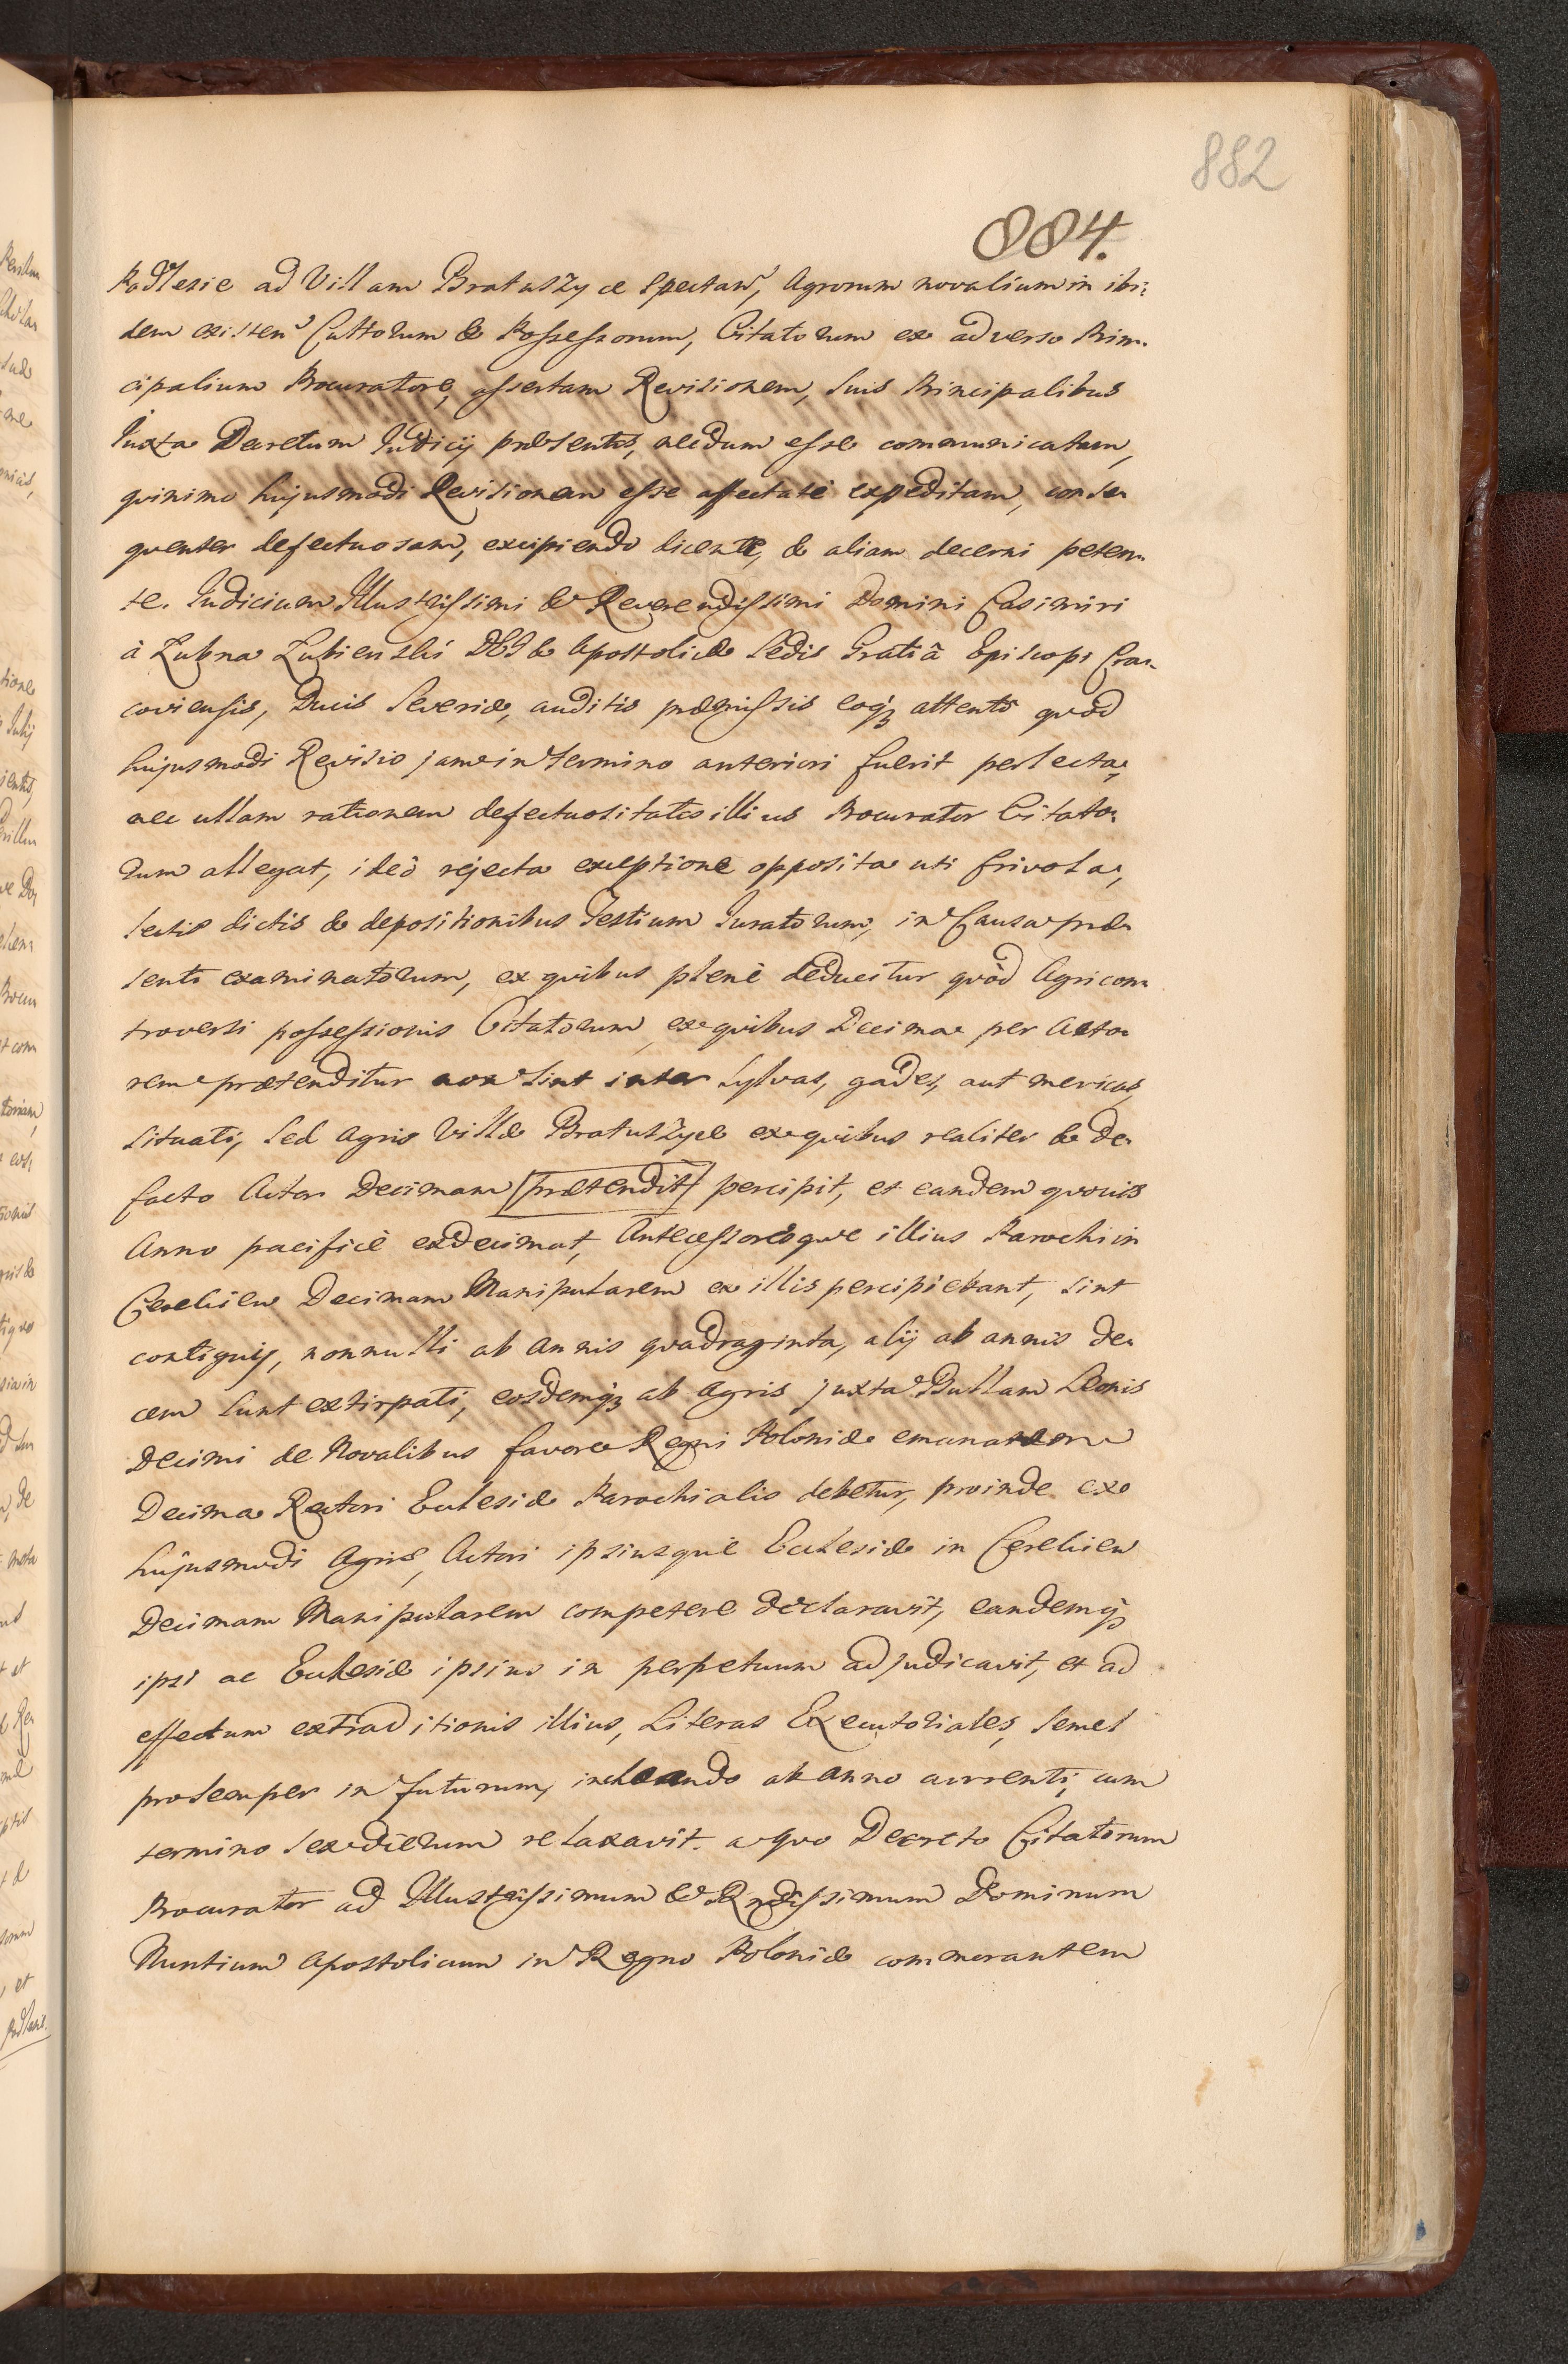 882
884.
Podlesie ad Villam Bratuszyce Spectan', Agrorum novalium in ibi-
dem existen' Cultorum & Possessorum, Citatorum ex adverso Prin-
cipalium Procuratore, assertam Revisionem, suis Principalibus
Juxta Decretum Judicij præsentis, necdum esse communicatam,
quinimo hujusmodi Revisionem esse affectatè expeditam, conse-
quenter defectuosam, excipiendo dicente, & aliam decerni peten-
te. Judicium Illustrissimi & Reverendissimi Domini Casimiri
à Łubna Łubienski DEI & Apostolicæ Sedis Gratiâ Episcopi Cra-
coviensis, Ducis Severiæ, auditis præmissis eoq; attento quod
hujusmodi Revisio jam in termino anteriori fuerit perlecta,
nec ullam rationem defectuositatis illius Procurator Citato-
rum allegat, ideò rejecta exceptione opposita uti frivola,
lectis dictis & depositionibus Testium Juratorum, in Causa præ-
senti examinatorum, ex quibus plenè deducitur quòd Agri con-
troversi possessionis Citatorum, ex quibus Decima per Acto-
rem prætenditur non sint inter Sylvas, gades, aut mericas,
situati, sed Agris Villæ Bratuszyce ex quibus realiter & de
facto Actor Decimam [prætendit] percipit, et eandem quovis
Anno pacificè exdecimat, Antecessoresque illius Parochi in
Cerekiew Decimam Manipularem ex illis percipiebant, sint
contiguij, nonnulli ab annis quadraginta, alij ab annis de-
cem sunt extirpati, eosdemq; ab Agris juxta Bullam Leonis
Decimi de Novalibus favore Regni Poloniæ emanatam
Decima Rectori Ecclesiæ Parochialis debetur, proinde ex
hujusmodi Agris, Actori ipsiusque Ecclesiæ in Cerekiew
Decimam Manipularem competere declaravit, eandemq;
ipsi ac Ecclesiæ ipsius in perpetuum adjudicavit, et ad
effectum extraditionis illius, Literas Executoriales, semel
pro semper in futurum, inchoando ab anno currenti, cum
termino sex dierum relaxavit. a quo Decreto Citatorum
Procurator ad Illustrissimum & Rndissimum Dominum
Nuntium Apostolicum in Regno Poloniæ commorantem